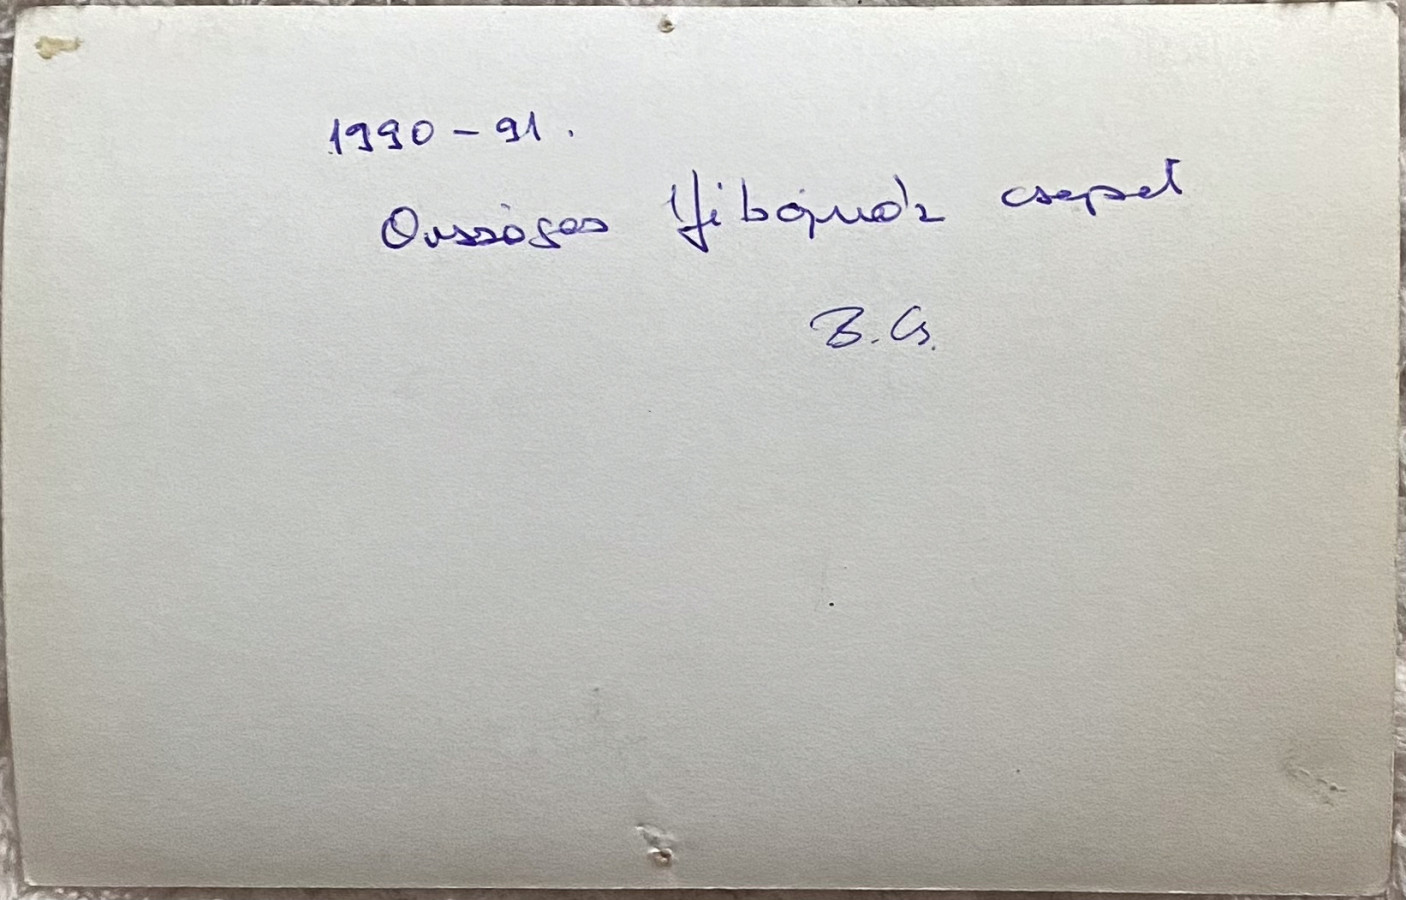 1990 - 91.
Országos Ifi bajnok csapat
B. G.